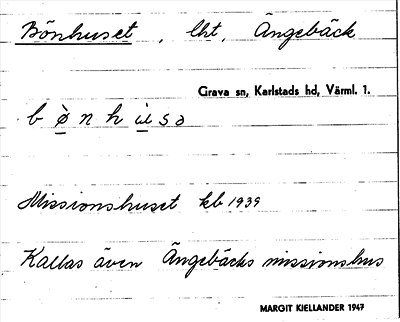 Bönhuset, lht, Ängebäck
Grava sn, Karlstads hd, Värml. 1.
b ø̀ n h ù s ə
Missionshuset kb 1939
Kallas även Ängebäcks missionshus
MARGIT KIELLANDER 1947